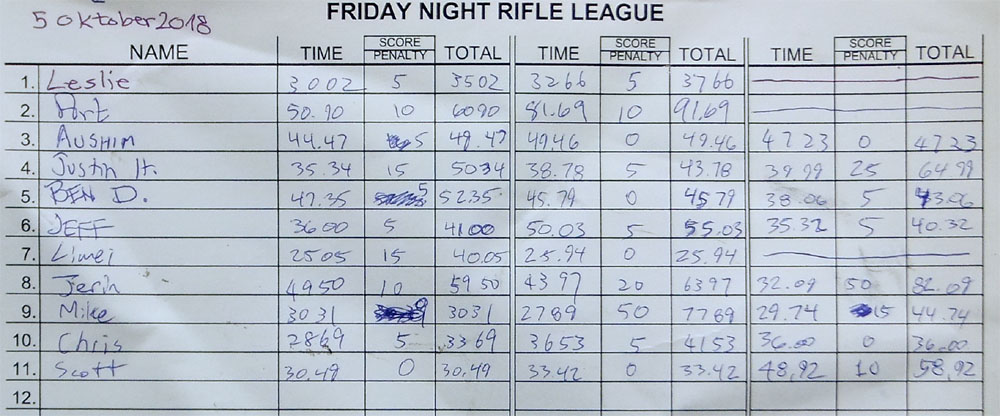 5 Oktober 2018
FRIDAY NIGHT RIFLE LEAGUE
NAME TIME SCORE PENALTY TOTAL TIME SCORE PENALTY TOTAL TIME SCORE PENALTY TOTAL
1. Leslie 3002 5 3502 3266 5 3766
2. 50.90 10 6090 81.69 10 91.69
3. AUSHIM 44.47 5 49.47 4946 0 49.46 4723 0 4723
4. Justin H. 35.34 15 5034 38.78 5 43.78 39.99 25 64.99
5. BEN D. 47.35 5 52.35 45.79 0 45.79 38.06 5 43.06
6. JEFF 3600 5 4100 50.03 5 55.03 35.32 5 40.32
7. Limei 2505 15 40.05 25.94 0 25.94
8. 4950 10 59 50 43 97 20 6397 32.09 50 82.09
9. Mike 3031 0 3031 2789 50 7789 29.74 15 44.74
10. Chris 2869 5 3369 3653 5 4153 36.00 0 36.00
11. Scott 30.49 0 30.49 33.42 0 33.42 48.92 10 58.92
12.